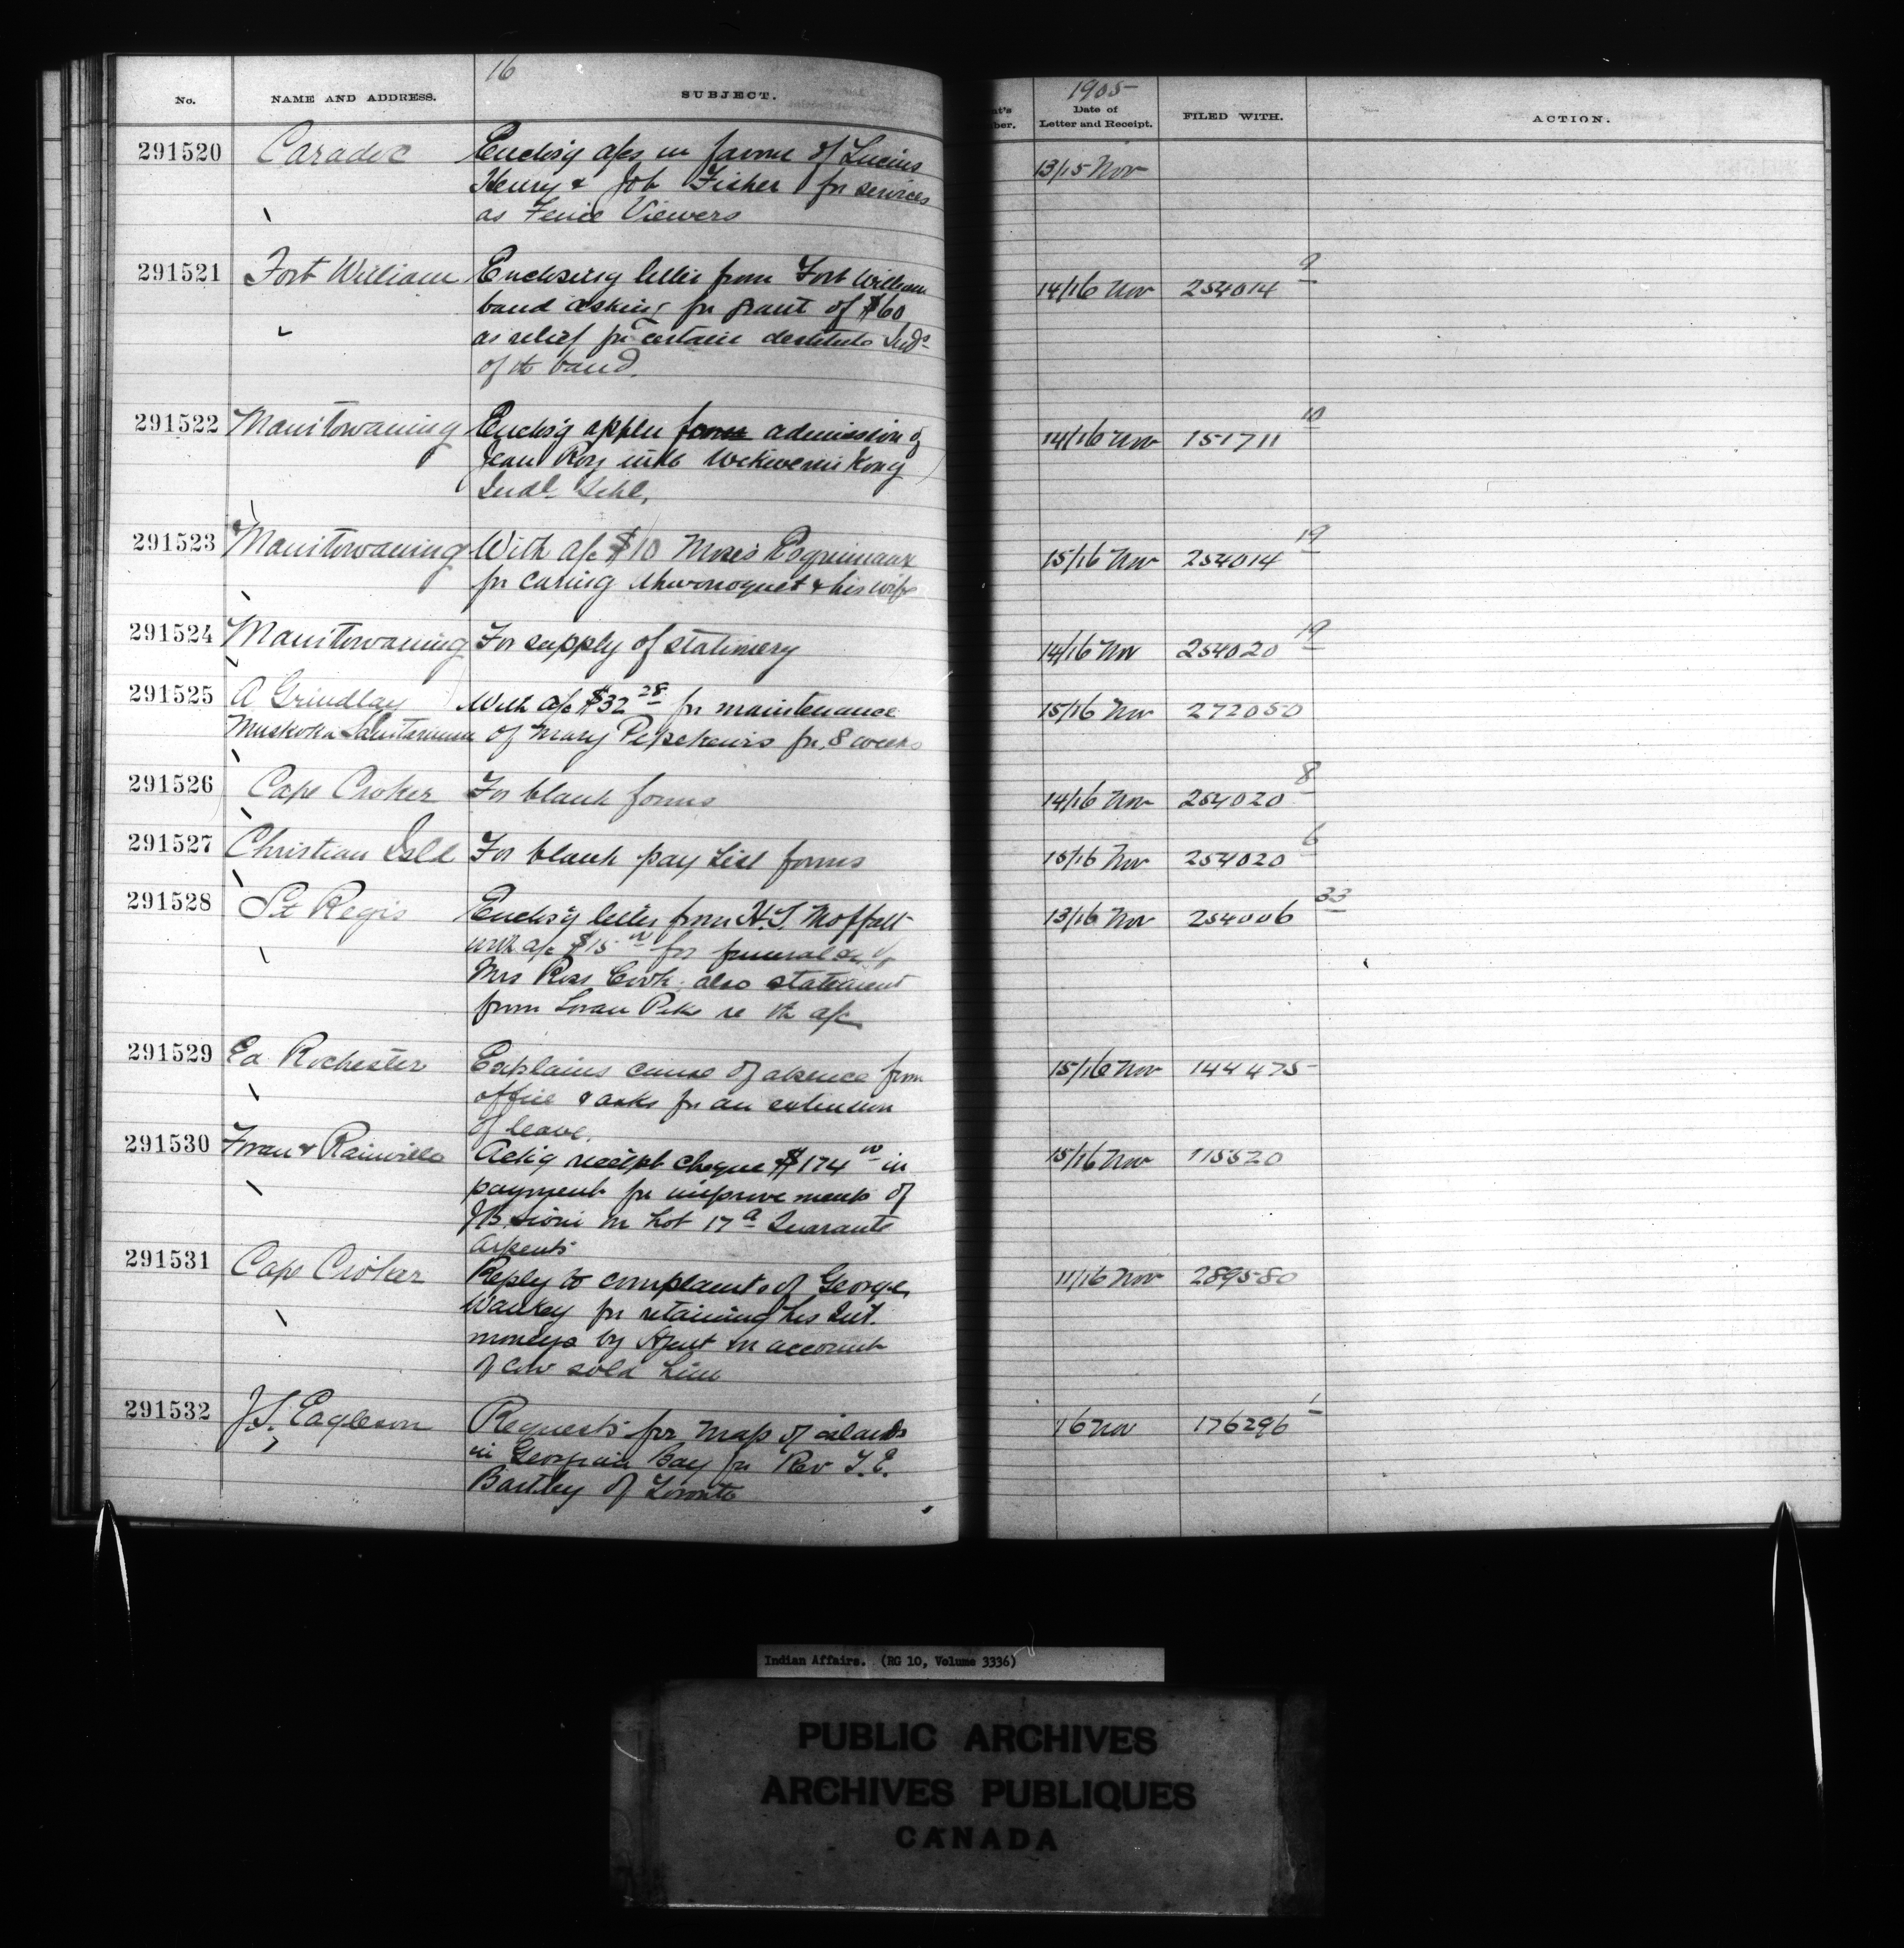 16
No. NAME AND ADDRESS. SUBJECT.
1905
Date of
Letter and Receipt. FILED WITH. ACTION.
291520 Caradoc Enclos'g a/cs in favour of Lucius 13/15 Nov
Henry & Job Fisher for services
as Fence Viewers
291521 Fort William Enclosing letter from Fort William 14/16 Nov 254014 9
band asking for grant of $60
as relief for certain destitute Inds
of the band.
291522 Manitowaning Enclos'g applon admission of 14/16 Nov 151711 10
Jean Roy into Wekwemikong
Indl Schl,
291523 Manitowaning With a/c $10 Moses Esquimaux 15/16 Nov 254014 19
for caring & his wife
291524 Manitowaning For supply of stationery 14/16 Nov 254020 19
291525 A Grindlay With a/c $32 28 for maintenance 15/16 Nov 272050
Muskoka Sanitarium of Mary for 8 weeks
291526 Cape Croker For blank forms 14/16 Nov 254020 8
291527 Christian Isld For blank pay list forms 15/16 Nov 254020 6
291528 St Regis Enclos'g letter from H.S. Moffatt 13/16 Nov 254006 33
with a/c $15 00 for funeral of
Mrs Ross Cook, also statement
from Loran Pike re the a/c
291529 Ed Rochester Explains cause of absence from 15/16 Nov 144475
office & asks for an extension
of leave.
291530 Foran & Rainville Ack'g receipt cheque $174 00 in 15/16 Nov 115520
payment for improvements of
J.B. Sioni on Lot 17a Quarante
Arpents
291531 Cape Croker Reply to complaint of George 11/16 Nov 289580
Waukey for retaining his Int.
moneys by Agent on account
of cow sold him
291532 J.S. Eagleson Requests for map of islands 16 Nov 176296 1
in Georgian Bay for Rev T.E.
Bartley of Toronto
Indian Affairs. (RG 10, Volume 3336)
PUBLIC ARCHIVES
ARCHIVES PUBLIQUES
CANADA